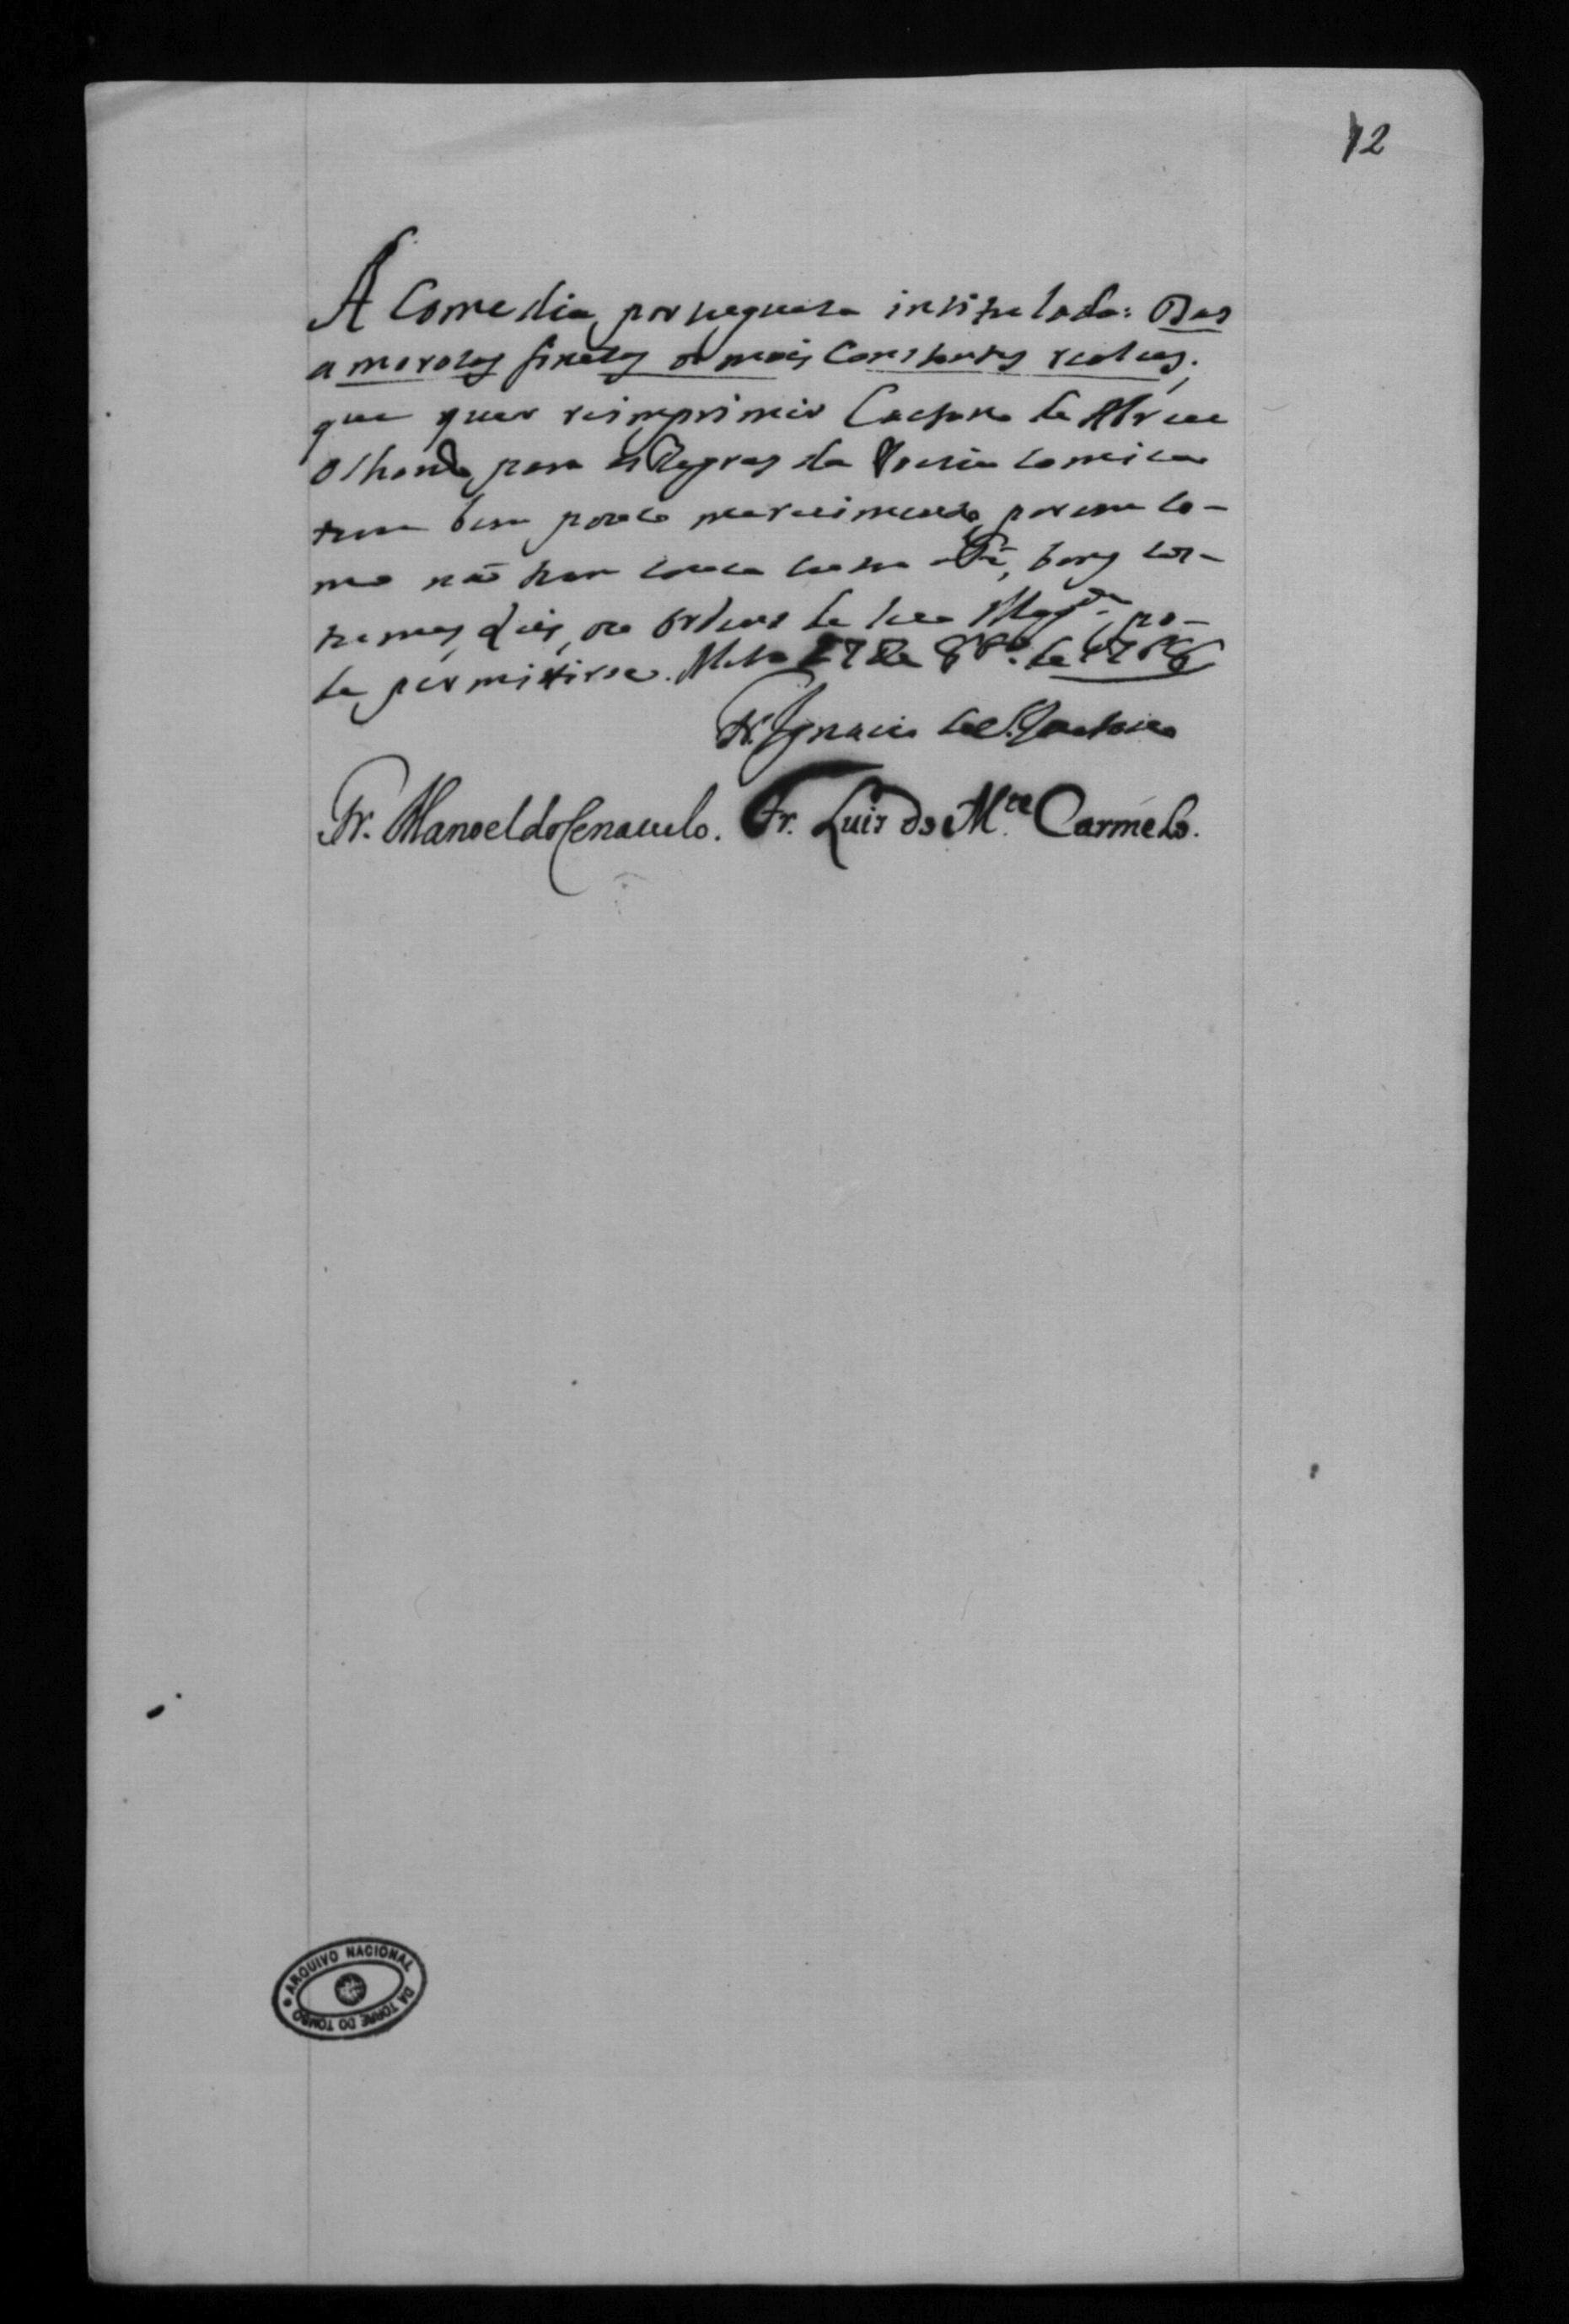 12
A Comedia portugueza intitulada: Das
amorosas finezas os mais Constantes realces;
que quer reimprimir Caetano de Abreu
Olhando para as Regras da Poezia comica
tem bem pouco merecimento, porem co-
mo não tem couza contra a Fé, bons cos-
tumes, Leis, ou ordens de sua Mag.de po-
de permitirse. Meza 27 de 8br.o de
Fr. Ignacio de S. Caetano
Fr. Manoel do Cenaculo. Fr. Luis do M.te Carmelo.
ARQUIVO NACIONAL DA TORRE DO TOMBO